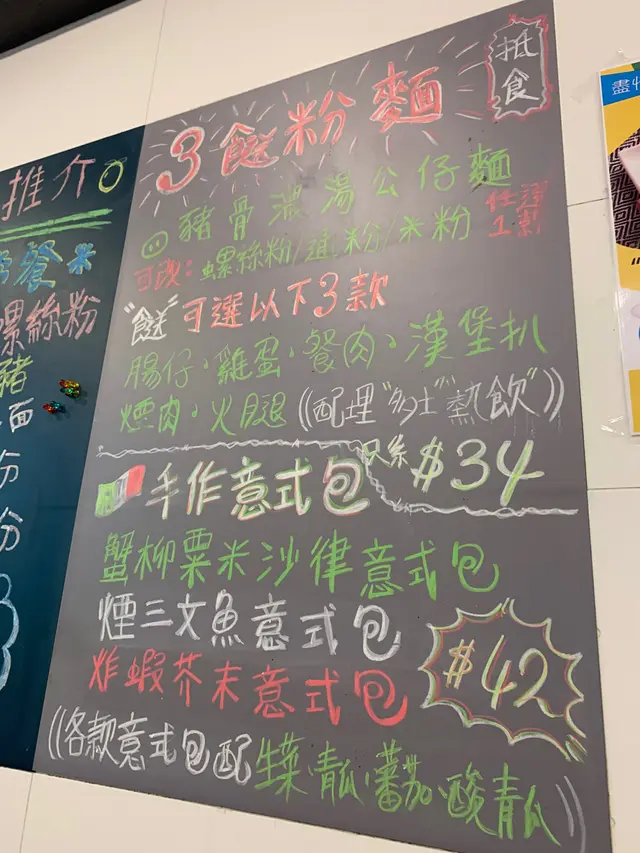 抵食
3餸粉麵
豬骨濃湯公仔麵
可改：螺絲粉/通粉/米粉
任選1款
"餸"可選以下3款
腸仔，雞蛋，餐肉，漢堡扒
煙肉，火腿（(配埋"多士""熱飲")）
手作意式包
只系$34
蟹柳粟米沙律意式包
煙三文魚意式包
炸蝦芥末意式包
$42
((各款意式包配生菜，青瓜，蕃茄，酸青瓜))
推介
餐米
螺絲粉
豬
面
份
份